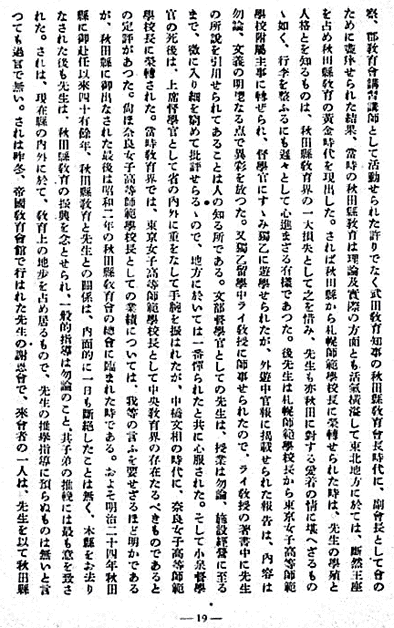 察、郡敎育會講習講師として活動せられた許りでなく武田敎育知事の秋田縣敎育會長時代に、副會長として會の
ために盡瘁せられた結果、當時の秋田縣敎育は理論及實際の方面とも活氣橫溢して東北地方に於ては、斷然王座
を占め秋田縣敎育の黄金時代を現出した。されば秋田縣から札幌師範學校長に榮轉せられた時は、先生の學殖と
人格とを知るものは、秋田縣敎育界の一大損失として之を惜み、先生も亦秋田に對する愛着の情に堪へざるもの
ゝ如く、行李を整へるにも遲々として心進まざる有樣であつた。後先生は札幌師範學校長から東京女子高等師範
學校附屬主事に轉ぜられ、督學官にすゝみ獨乙に遊學せられたが、外遊中官報に掲載せられた報告は、内容は
勿論、文義の明瞭なる点で異彩を放つた。又獨乙留學中ライ敎授に師事せられたので、ライ敎授の著書中に先生
の所說を引用せられてあることは人の知る所である。文部督學官としての先生は、授業は勿論、施設經營に至る
まで、微に入り細を穿めて批評せらるゝので、地方に於いては一番憚られたと共に心服された。そして小泉督學
官の死後は、上席督學官として省の内外に重きをなして手腕を振はれたが、中橋文相の時代に、奈良女子高等師範
學校長に榮轉された。當時敎育界では、東京女子高等師範學校長として中央敎育界の存在たるべきものであると
の定評があつた。尙ほ奈良女子高等師範學校長としての業績については、我等の言ふを要せざるほど明かである
が、秋田縣に御出なされた最後は昭和二年の秋田縣敎育會の總會に臨まれた時である。およそ明治二十四年秋田
縣に御赴任以來四十有餘年、秋田縣敎育と先生との關係は、内面的に一日も斷絕したことは無く、本縣をお去り
なされた後も先生は、秋田縣敎育の振興を念とせられ、一般的指導は勿論のこと、其子弟の推輓には最も意を致さ
れた。されは、現在縣の内外に於て、敎育上の地歩を占め居るもので、先生の推擧指導に預らぬものは無いと言
つても過言で無い。されは昨冬、帝國敎育會館で行はれた先生の謝恩會で、來會者の一人は、先生を以て秋田縣
— 19 —